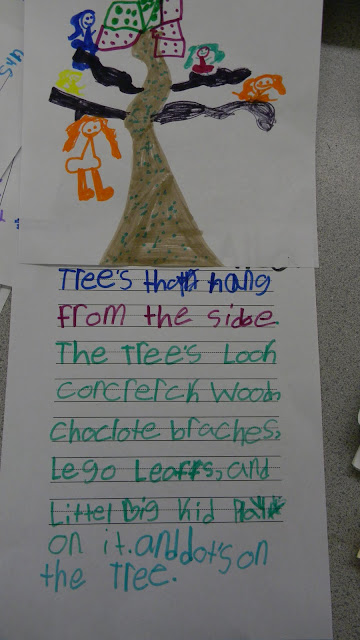 Tree's that hang
from the side
The Tree's Look
concrerck woods
choclote braches,
Lego Leaffs, and
Littel Big kid
on it. and dot's on
the Tree.